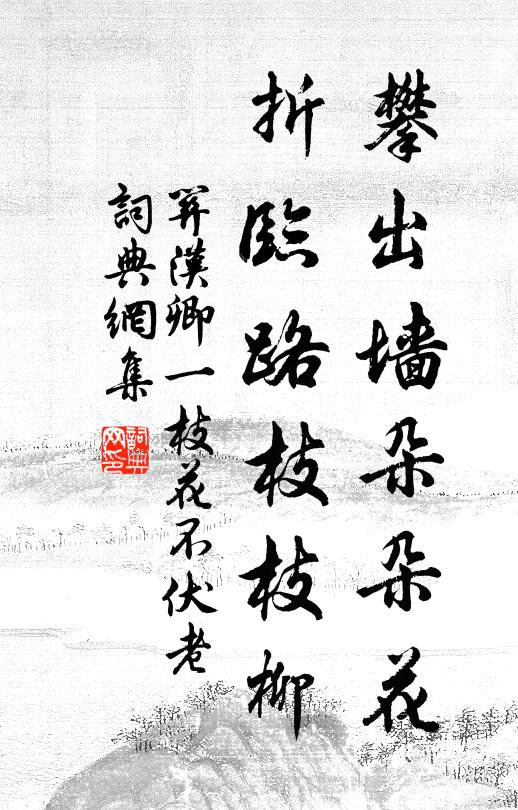 攀出墙朵朵花
折臨路枝枝柳
関漢卿一枝花不伏老
詞典網集